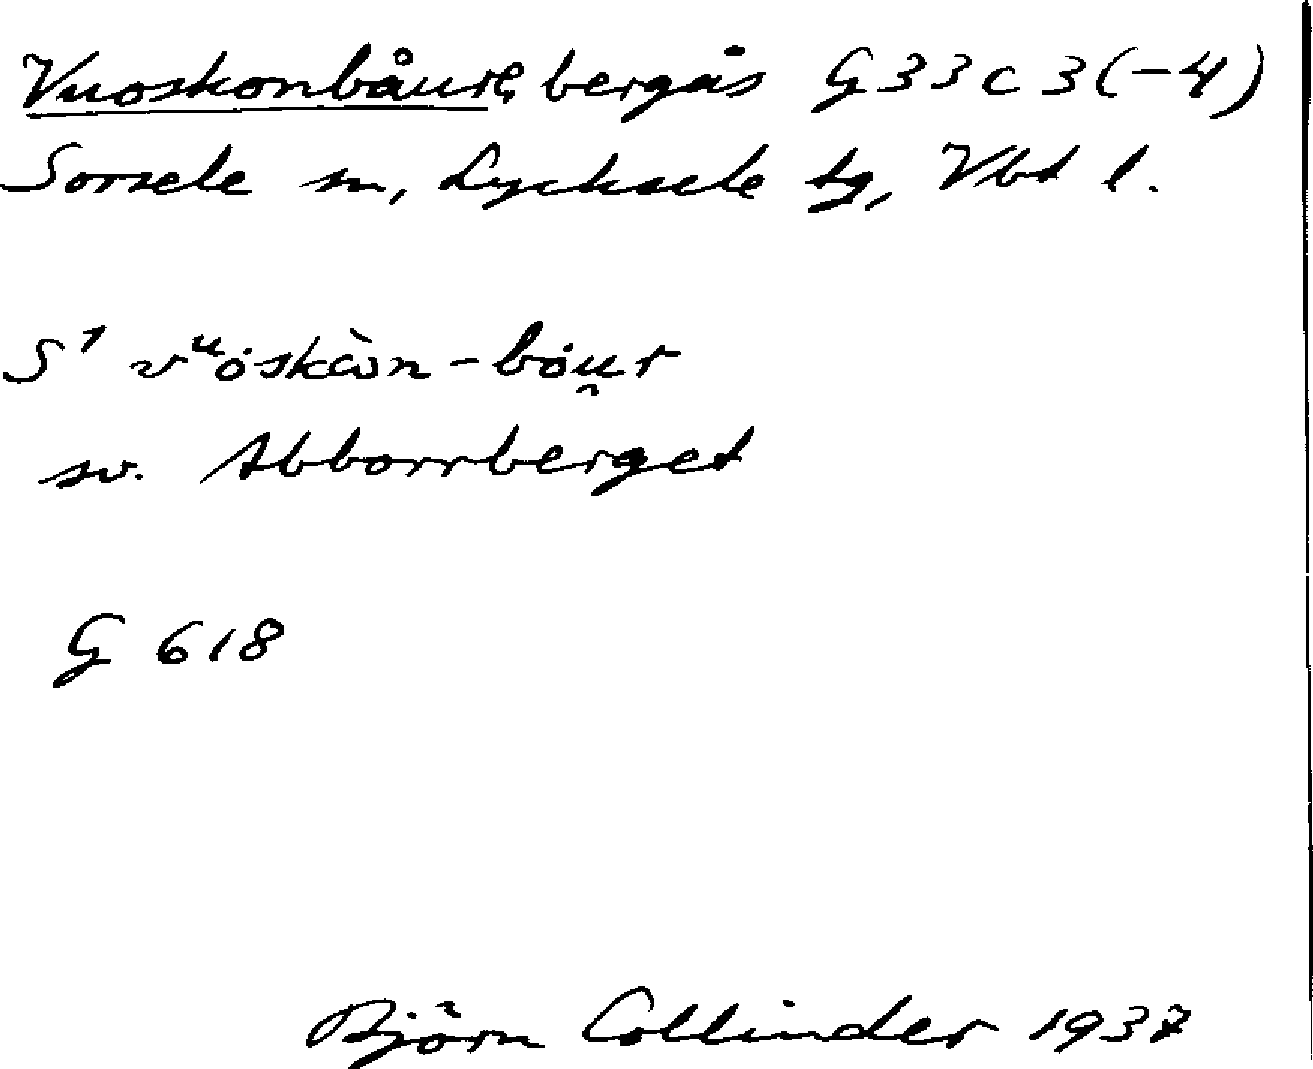 Vuoskonbåure, bergås G 33 c 3 (-4)
Sorsele sn, Lycksele tg, Vbt l.
S¹ vᵘȯskὼn-bȯu̯r
sv. Abborrberget
G 618
Björn Collinder 1937